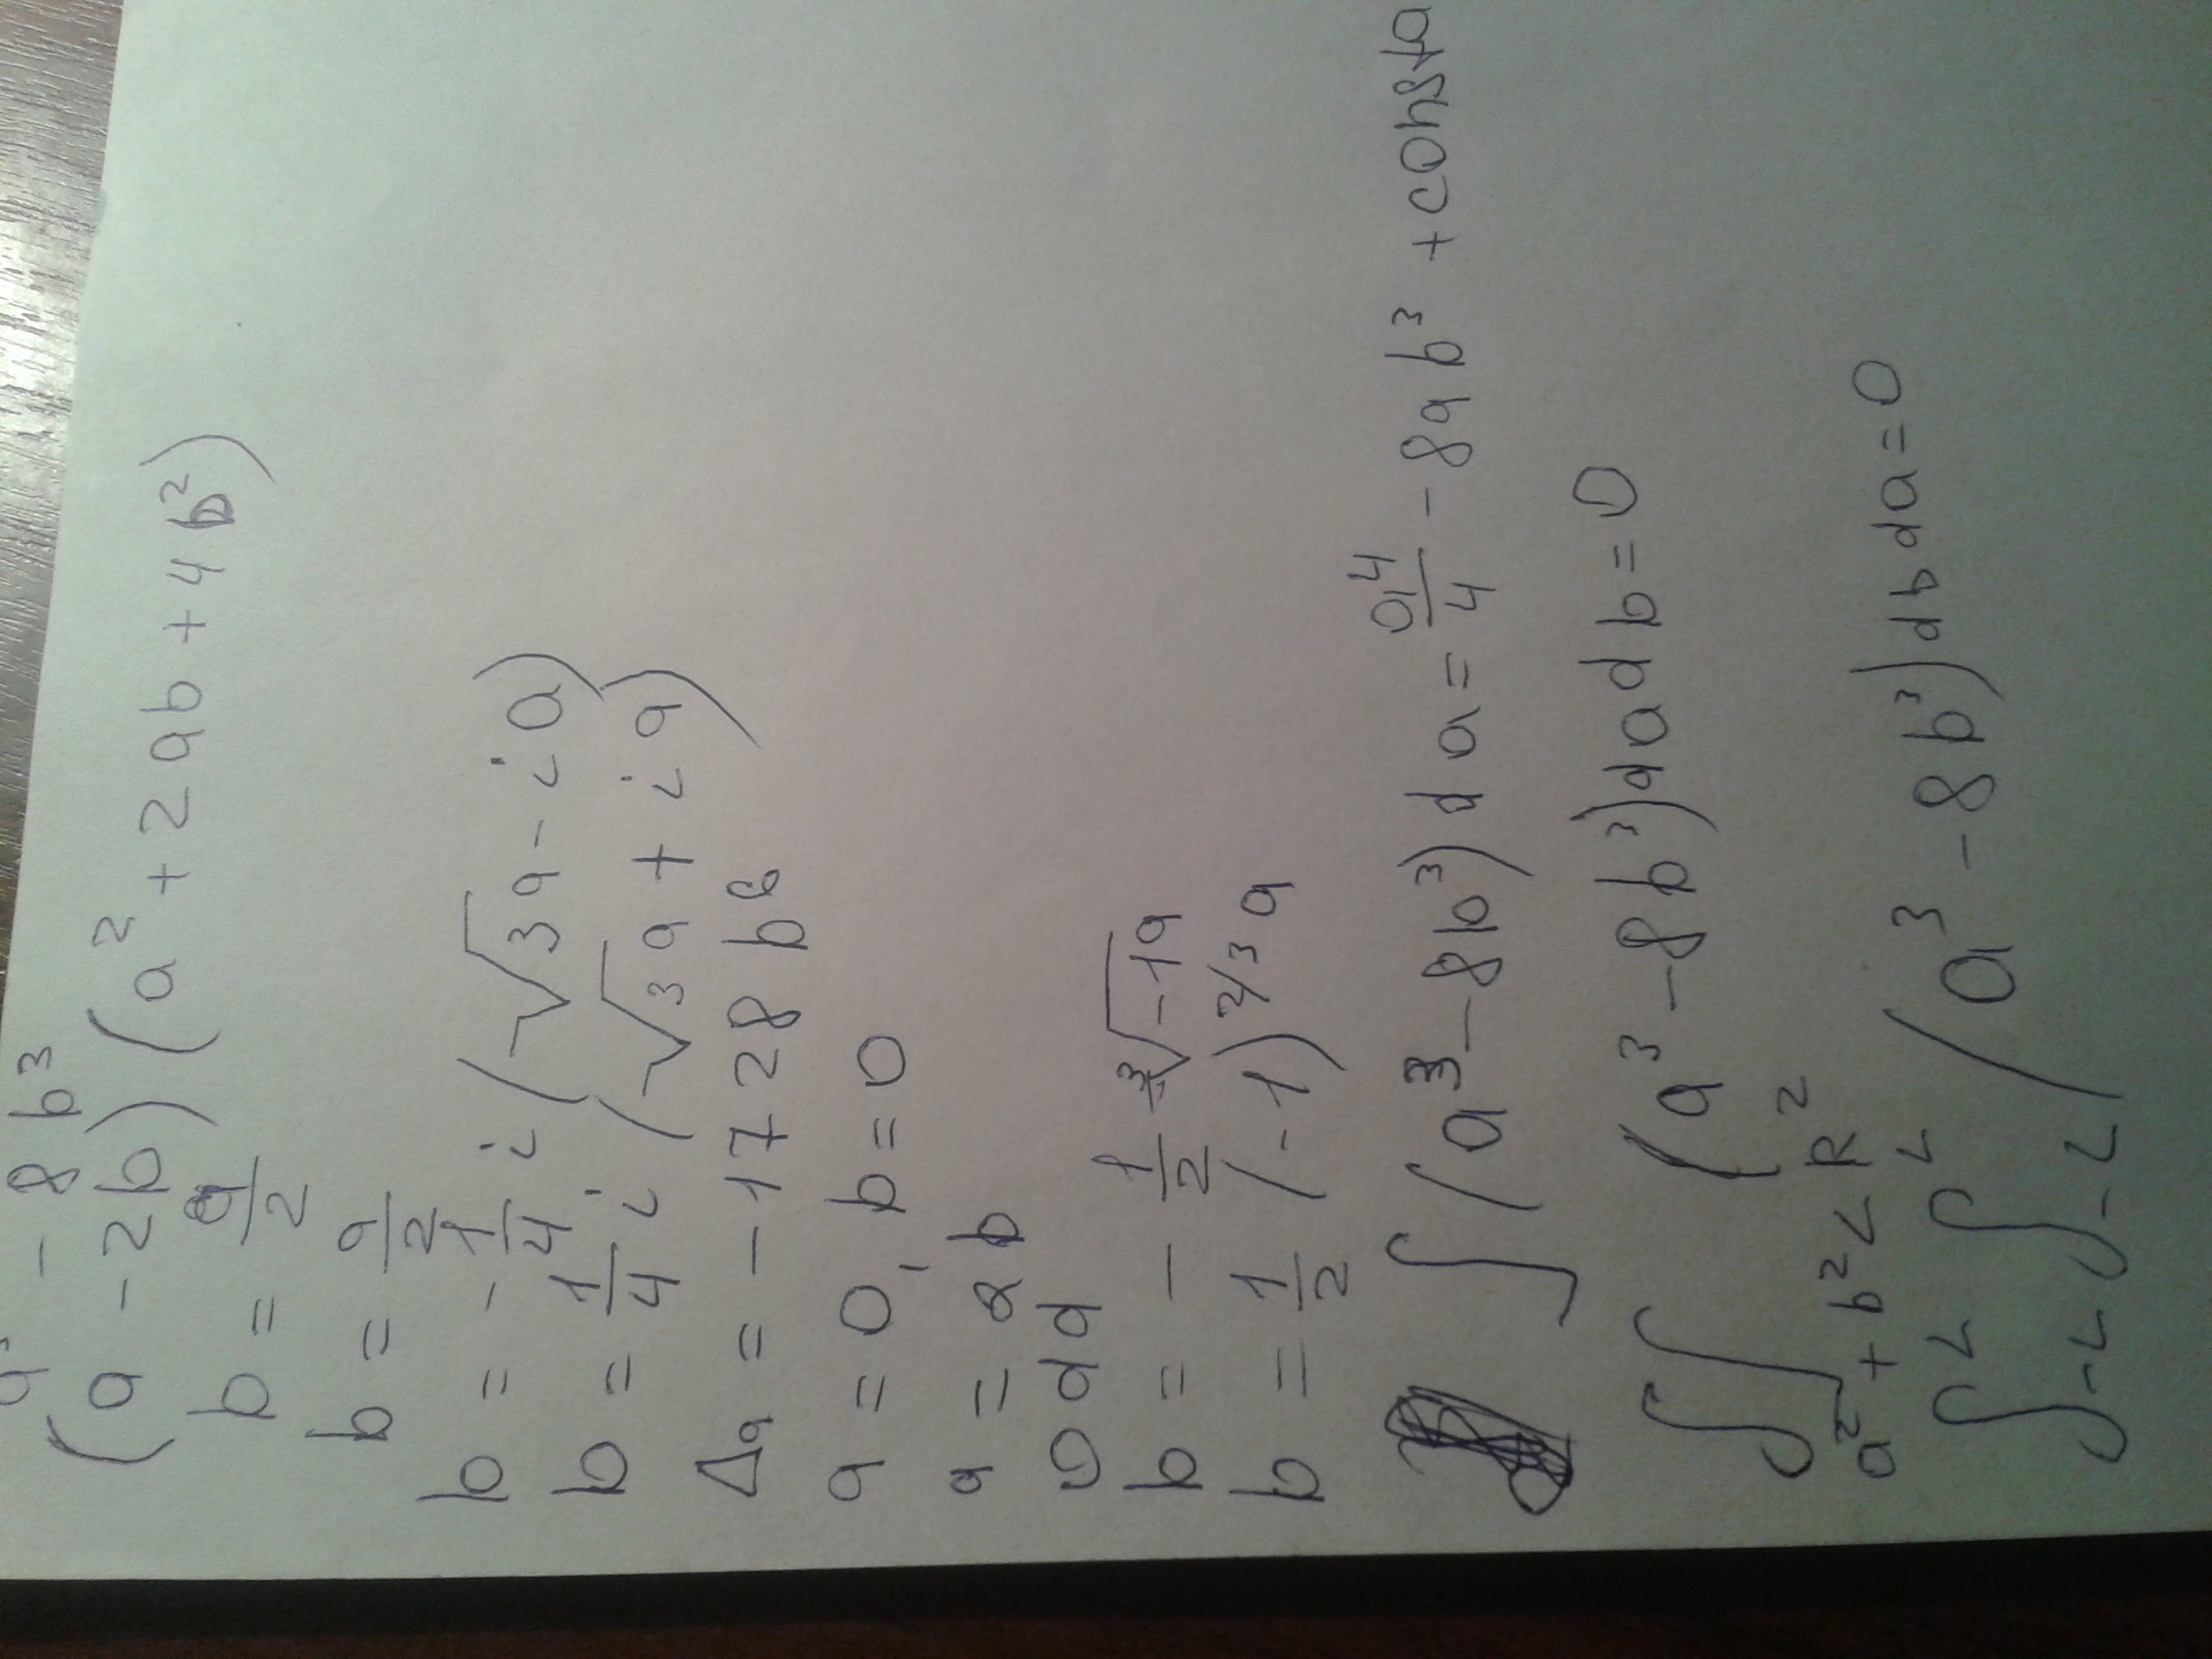 a³ - 8b³
(a - 2b)(a² + 2ab + 4b²)
b = a/2
b = a/2
b = - 1/4 i (√3a - ia)
b = 1/4 i (√3a + ia)
Δa = -1728 b⁶
a = 0, b = 0
a = 2b
b = - 1/2 ³√-1a
b = 1/2 (-1)^2/3 a
∫(a³ - 8b³)da = a⁴/4 - 8ab³ + consta
∫∫ a² + b² < R² (a³ - 8b³)dadb = 0
∫-L L ∫-L L (a³ - 8b³)dbda = 0